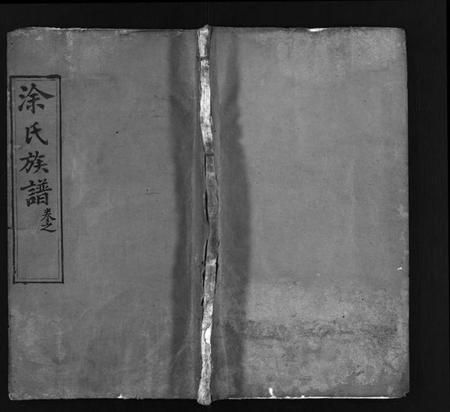 涂氏族譜卷之